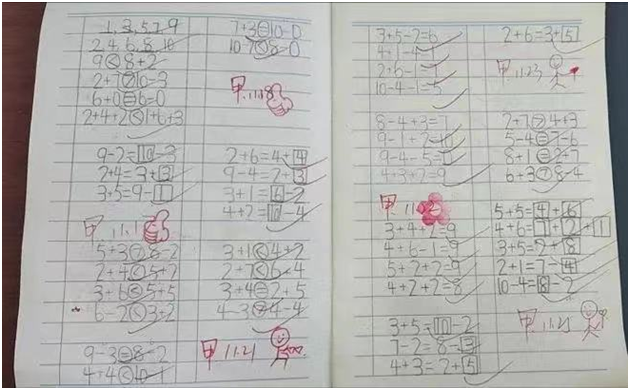 1, 3, 5, 7, 9
2, 4, 6, 8, 10
9<8+2
2+7>10-3
6+0=6-0
2+4+2<1+6+3
9-2=10-3
2+4=3+3
3+5=9-1
甲
5+3>8-2
2+4<5+2
3+6<5+5
6-2<3+2
9-3=8-2
4+4<10-1
7+3=10-0
10-7<8-0
甲 11.18
2+6=4+4
9-4=2+3
3+1=6-2
4+2=10-4
3+1<4+2
2+7<6+4
3+4=2+5
4-3>4-4
甲 11.21
3+5-2=6
4+1-4=1
10-4-1=5
8-4+3=7
9-1+2=10
4+3+2=9
甲
5+2+2=9
4+2+2=8
3+5=10-2
7-2=8-3
4+3=2+5
2+6=3+5
甲 11.23
2+7>4+3
8+1=2+7
6+3>8-4
5+5=4+6
4+6=7+2+1
2+1=7-4
10-4=8-2
甲